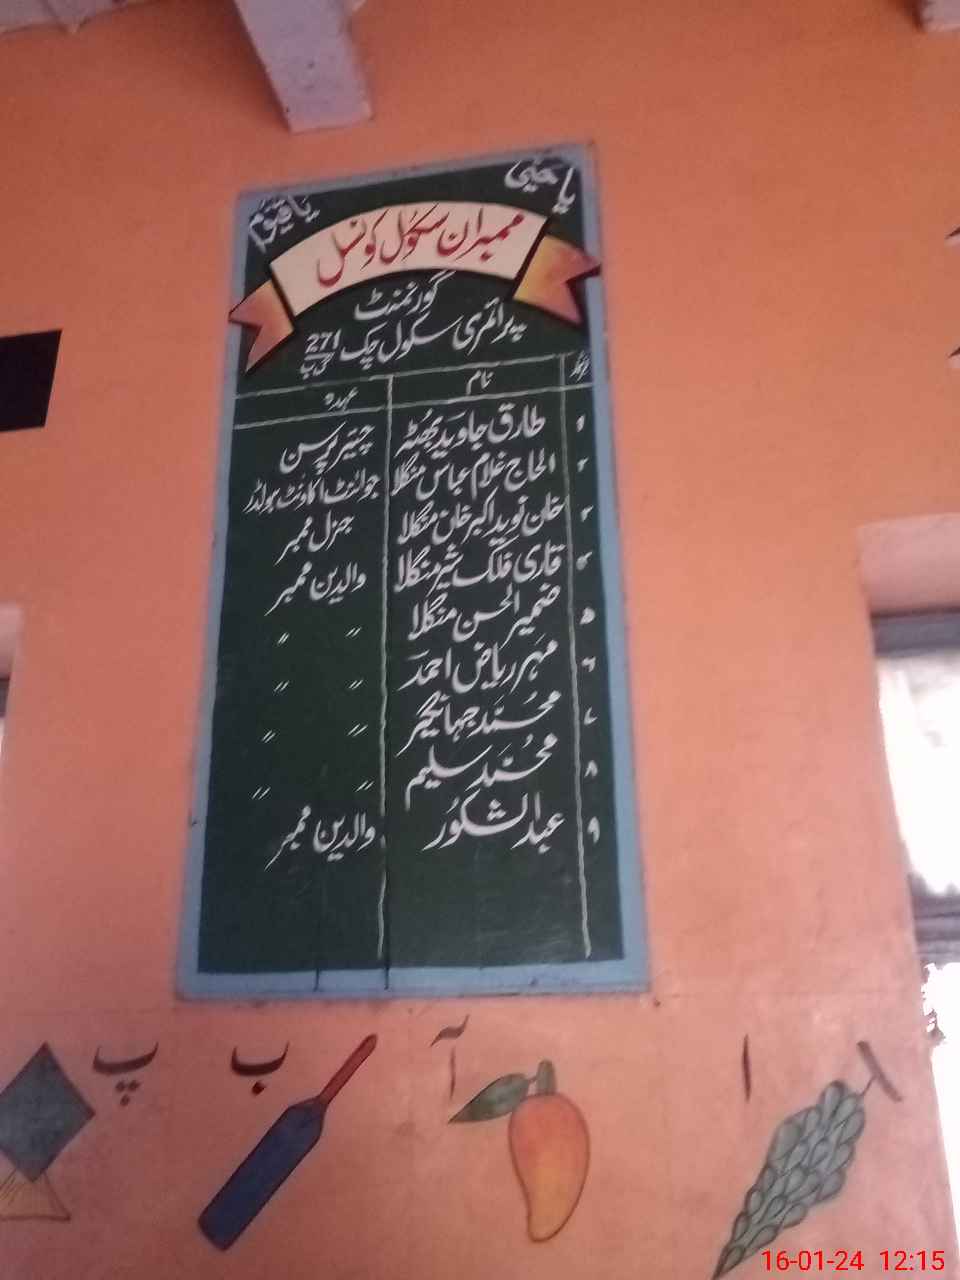 یا حَیُّ یا قیّوم
ممبران سکول کونسل
گورنمنٹ
پرائمری سکول چک 271
نمبر نام عہدہ
۱ طارق جاوید بھُٹہ چیئرپرسن
۲ الحاج غلام عباس منگلا جوائنٹ اکاؤنٹ ہولڈر
۳ خان نوید اکبر خان منگلا جنرل ممبر
۴ قاری فلک شیر منگلا والدین ممبر
۵ ضمیر الحسن منگلا 〃 〃
۶ مہر ریاض احمد 〃 〃
۷ محمّد جہانگیر 〃 〃
۸ محمّد سلیم 〃 〃
۹ عبدالشکُور والدین ممبر
ا آ ب پ
16-01-24 12:15